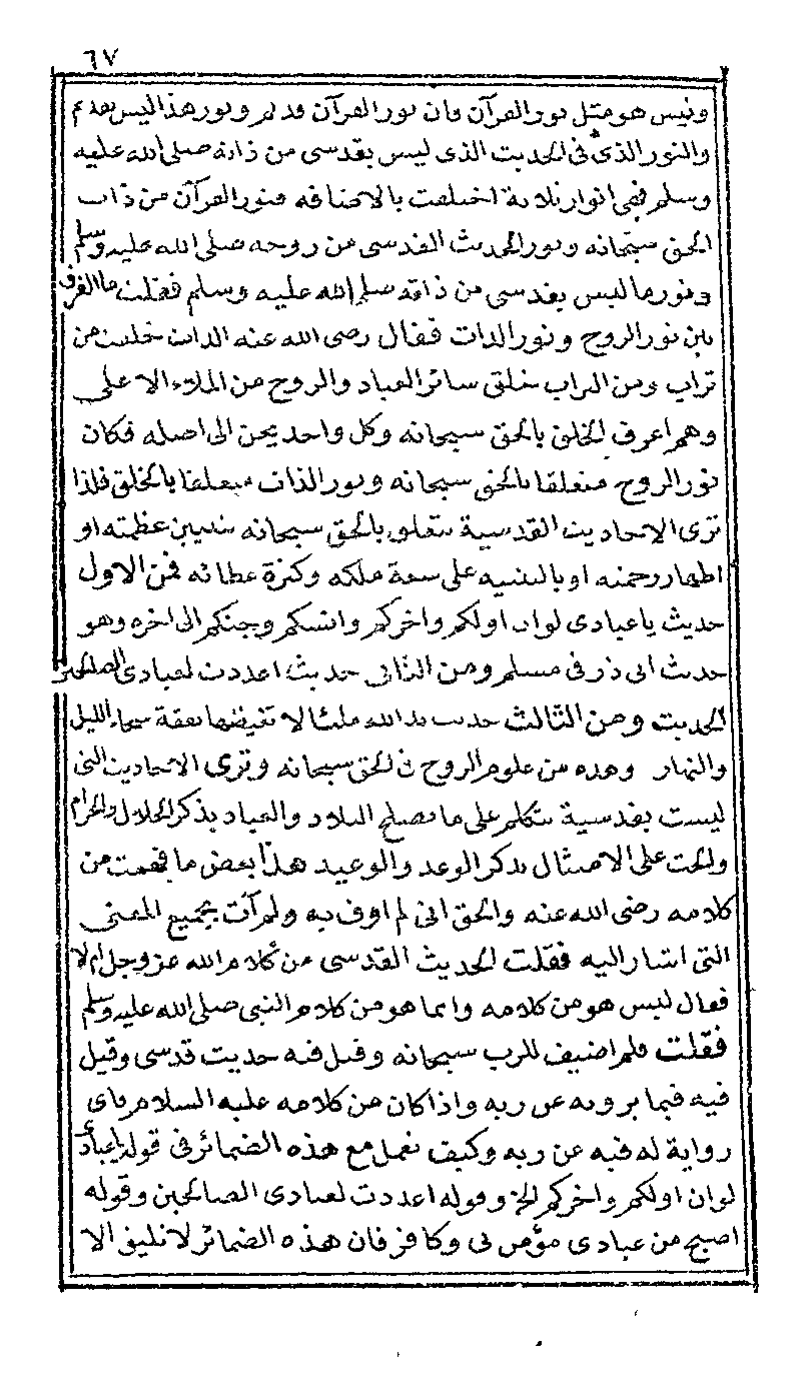 ٦٧
وليس هو مثل نور القرآن فان نور القرآن قديم ونور هذا ليس بقديم
والنور الذى فى الحديث الذى ليس بقدسى من ذاته صلى الله عليه
وسلم فهى انوار ثلاثة اختلفت بالاضافه فنور القرآن من ذات
الحق سبحانه ونور الحديث القدسى من روحه صلى الله عليه وسلم
ونور ما ليس بقدسى من ذاته صلى الله عليه وسلم فقلت ما الفرق
بين نور الروح ونور الذات فقال رضى الله عنه الذات خلقت من
تراب ومن التراب خلق سائر العباد والروح من الملاء الاعلى
وهم اعرف الخلق بالحق سبحانه وكل واحد يحن الى اصله فكان
نور الروح متعلقا بالحق سبحانه ونور الذات متعلقا بالخلق فلذا
ترى الاحاديث القدسية تتعلق بالحق سبحانه بتبيين عظمته او
اظهار رحمته او بالتنبيه على سعة ملكه وكثرة عطائه فمن الاول
حديث يا عبادى لو ان اولكم واخركم وانسكم وجنكم الى اخره وهو
حديث ابى ذر فى مسلم ومن الثانى حديث اعددت لعبادى الصالحين
الحديث ومن الثالث حديث يد الله ملئا لا تغيضها نفقة سحاء الليل
والنهار وهذه من علوم الروح فى الحق سبحانه وترى الاحاديث التى
ليست بقدسية تتكلم على ما يصلح البلاد والعباد بذكر الحلال والحرام
والحث على الامتثال بذكر الوعد والوعيد هذا بعض ما فهمت من
كلامه رضى الله عنه والحق انى لم اوف به ولم آت بجميع المعنى
التى اشار اليه فقلت الحديث القدسى من كلام الله عز وجل ام لا
فقال ليس هو من كلامه وانما هو من كلام النبى صلى الله عليه وسلم
فقلت فلم اضيف للرب سبحانه وقيل فيه حديث قدسى وقيل
فيه فيما يرويه عن ربه واذا كان من كلامه عليه السلام فاى
رواية له فيه عن ربه وكيف نعمل مع هذه الضمائر فى قوله يا عبادى
لو ان اولكم واخركم الخ وقوله اعددت لعبادى الصالحين وقوله
اصبح من عبادى مؤمن بى وكافر فان هذه الضمائر لا تليق الا